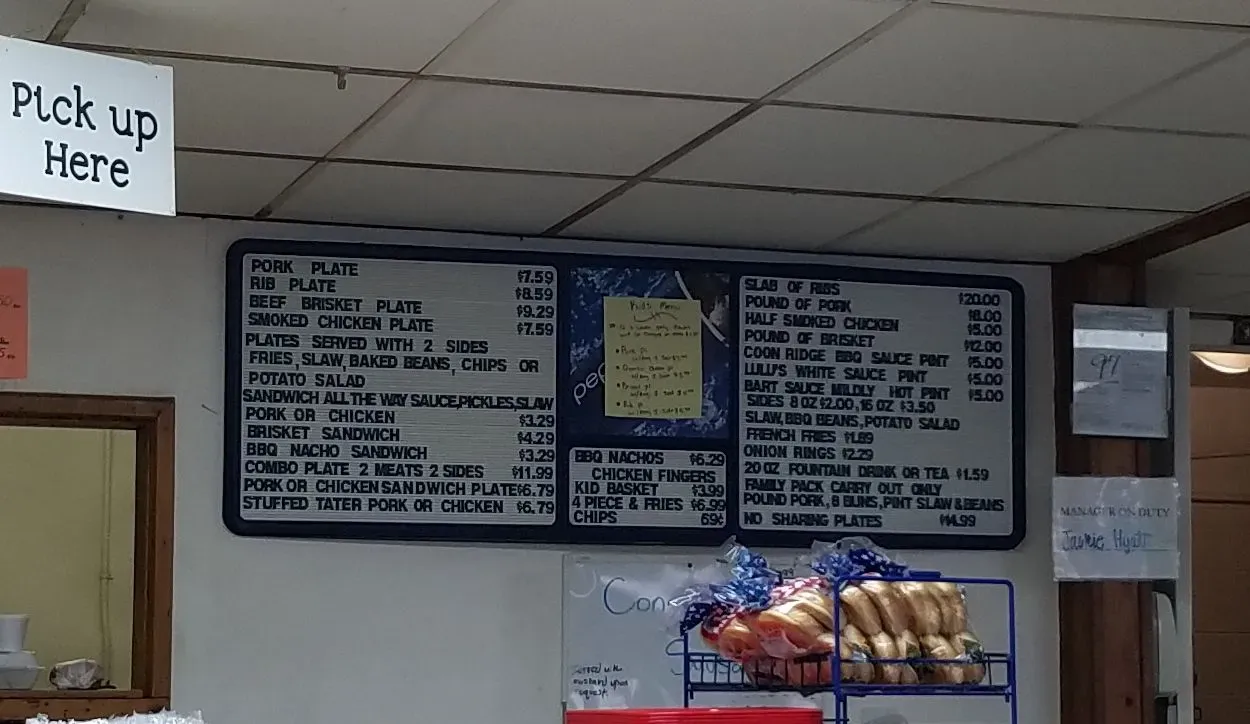 Pick up
Here
PORK PLATE $7.59
RIB PLATE $8.59
BEEF BRISKET PLATE $9.29
SMOKED CHICKEN PLATE $7.59
PLATES SERVED WITH 2 SIDES
FRIES,SLAW,BAKED BEANS, CHIPS OR
POTATO SALAD
SANDWICH ALL THE WAY SAUCE,PICKLES,SLAW
PORK OR CHICKEN $3.29
BRISKET SANDWICH $4.29
BBQ NACHO SANDWICH $3.29
COMBO PLATE 2 MEATS 2 SIDES $11.99
PORK OR CHICKEN SANDWICH PLATE $6.79
STUFFED TATER PORK OR CHICKEN $6.79
Kid's Menu
pep
BBQ NACHOS $6.29
CHICKEN FINGERS
KID BASKET $3.99
4 PIECE & FRIES $6.99
CHIPS 69¢
SLAB OF RIBS $20.00
POUND OF PORK $8.00
HALF SMOKED CHICKEN $5.00
POUND OF BRISKET $12.00
COON RIDGE BBQ SAUCE PINT $5.00
LULU'S WHITE SAUCE PINT $5.00
BART SAUCE MILDLY HOT PINT $5.00
SIDES 8 OZ $2.00, 16 OZ $3.50
SLAW,BBQ BEANS,POTATO SALAD
FRENCH FRIES $1.89
ONION RINGS $2.29
20 OZ FOUNTAIN DRINK OR TEA $1.59
FAMILY PACK CARRY OUT ONLY
POUND PORK, 8 BUNS, PINT SLAW & BEANS
NO SHARING PLATES $14.99
97
MANAGER ON DUTY
Con